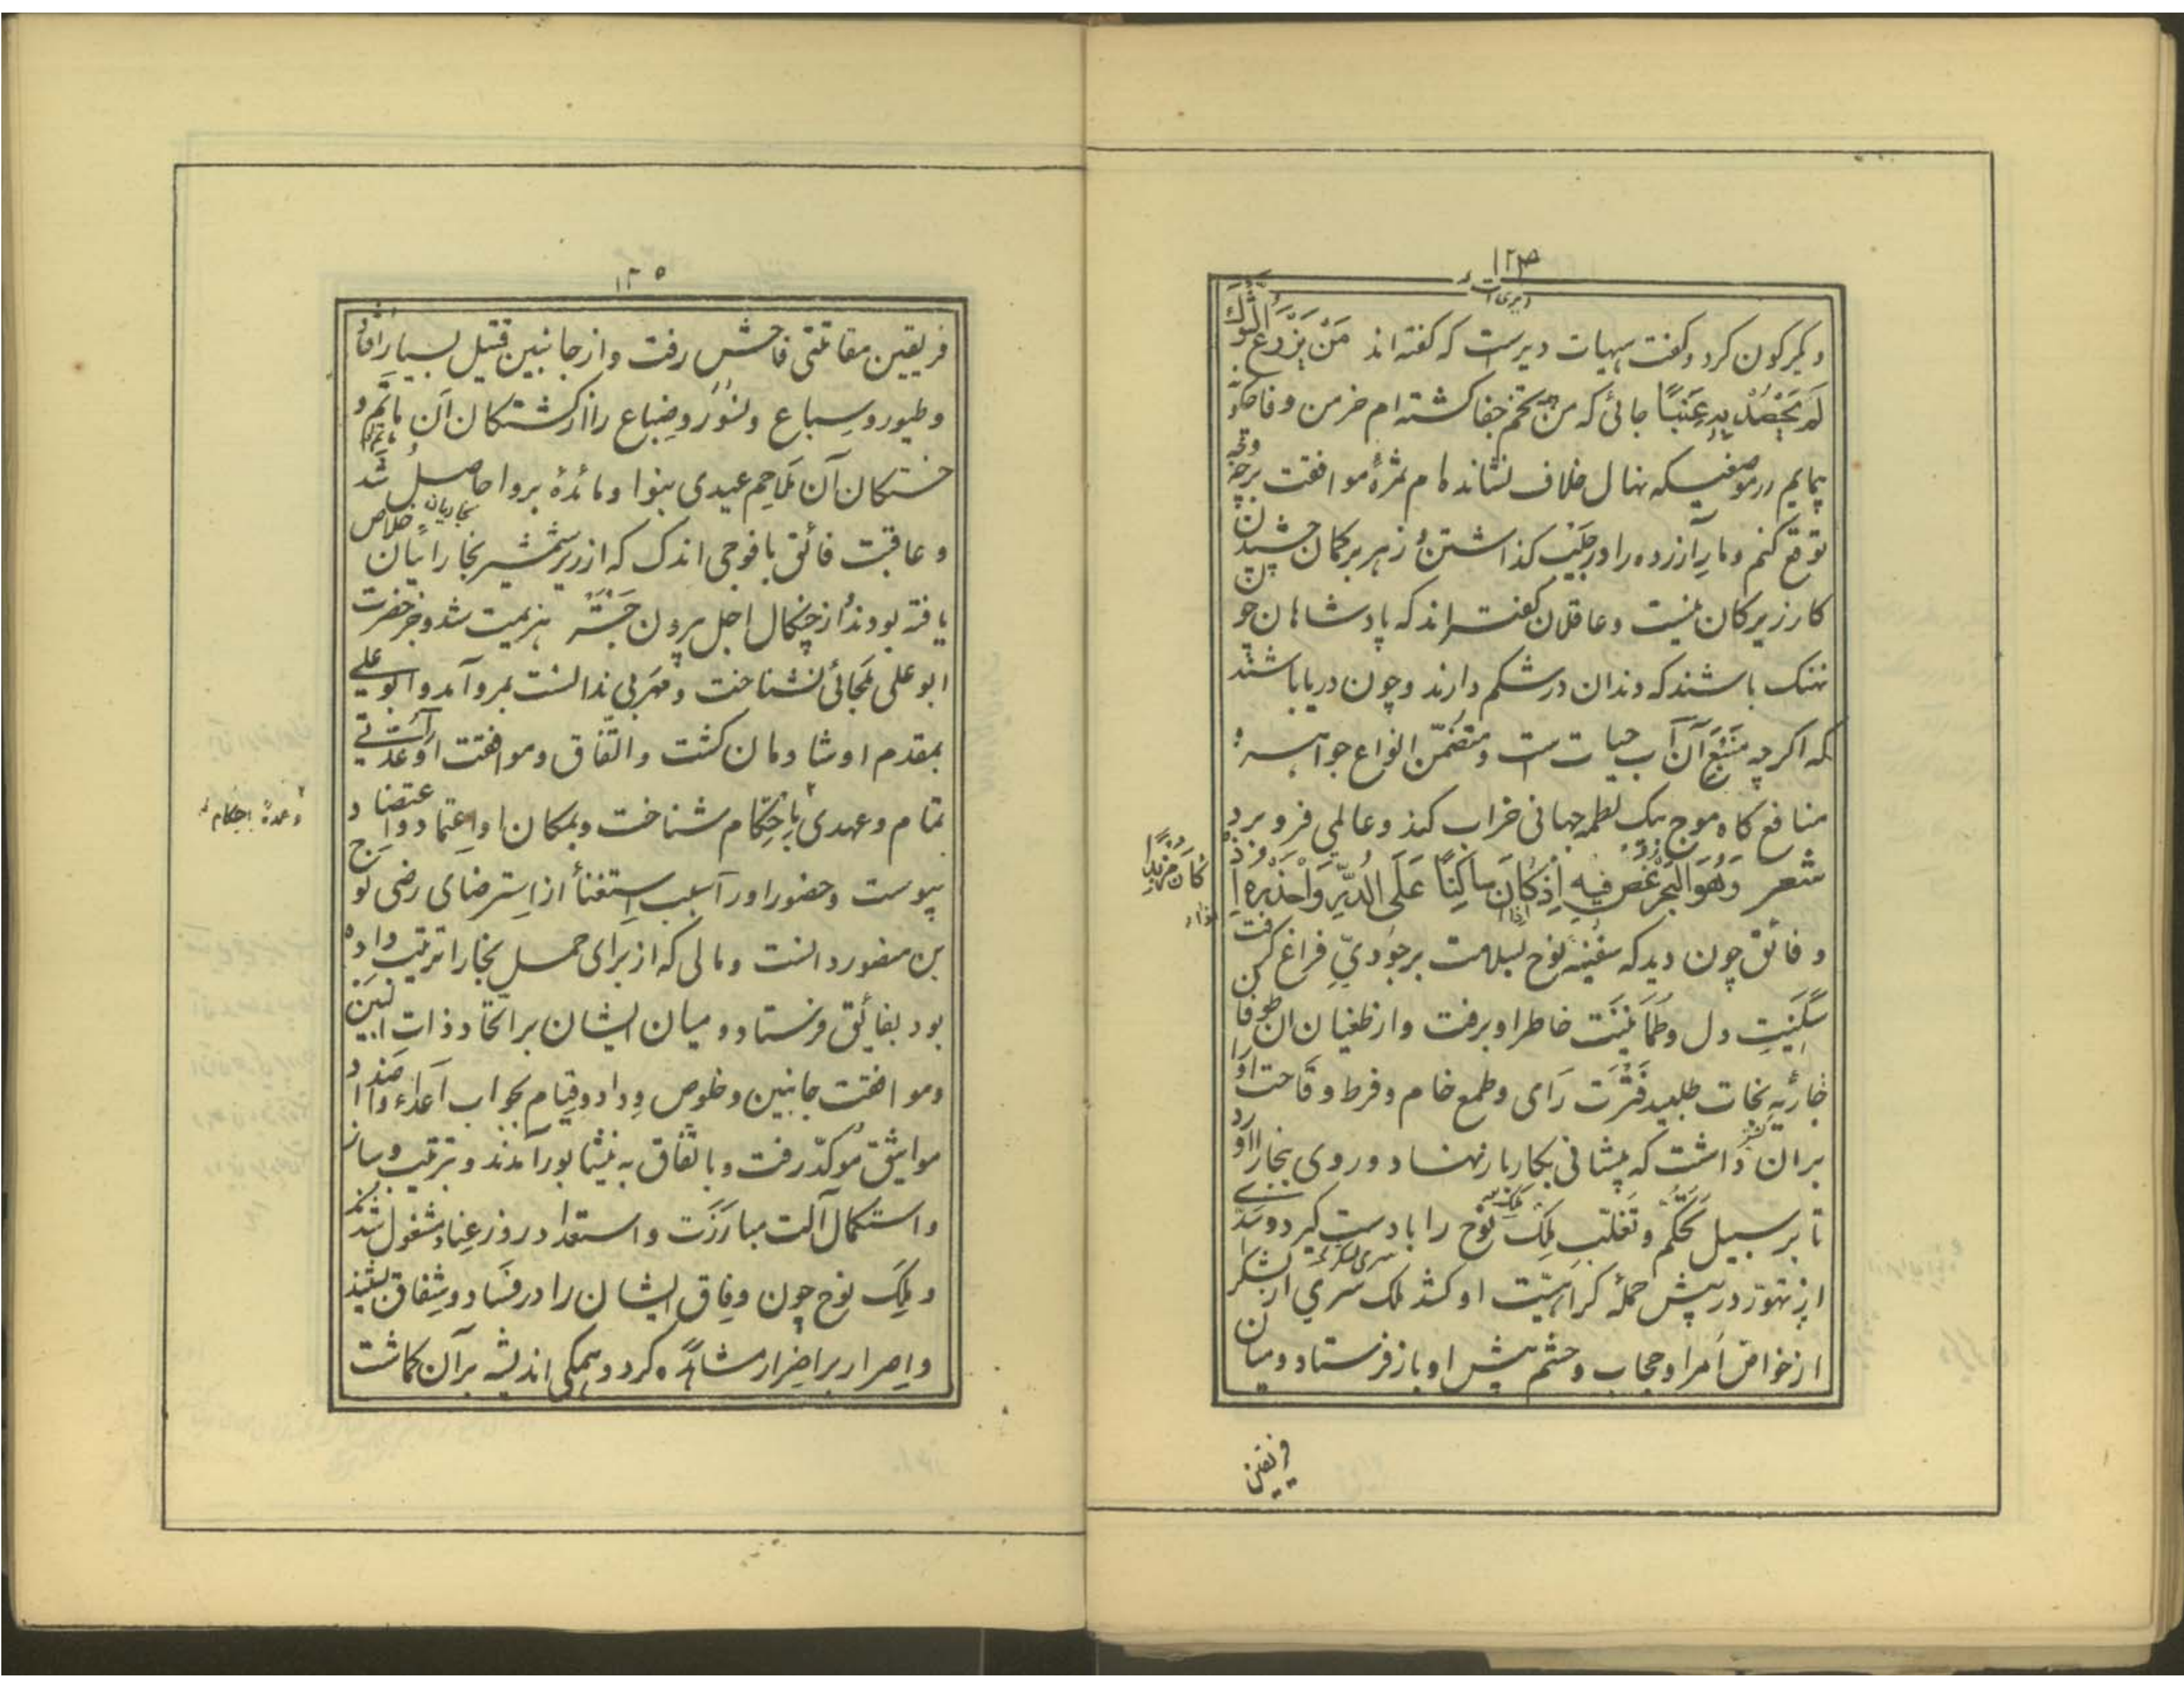 ۱۲۴
دیکرکون کرد و کفت هیهات دیرست که کفته اند مَنْ یَزْرَعِ الشَّوْكَ
لَمْ یَحْصُدْ بِهِ عِنَبًا جائی که من تخم جفا کشته ام خرمن وفا چکونه
پیمایم و در موضعیکه نهال خلاف نشانده ام ثمرهٔ موافقت برچه وجه
توقع کنم و مارِ آزرده را در جَیْب کذاشتن و زهر بر کمان چشیدن
کار زیرکان نیست و عاقلان کفته اند که پادشاهان چون
نهنک باشند که دندان در شکم دارند و چون دریا باشند
که اکرچه مَنْبَعِ آن آب حیات ست و متضمّن انواع جواهر و
منافع کاه موج بیک لطمه جهانی خراب کند و عالمی فرو برد
شعر وَهُوَ الْبَحْرُ غُصْ فِیهِ اِذْ کَانَ سَاکِنًا عَلَی الدُّرِّ وَاحْذَرْهُ اِذَا
کَانَ مُزْبِدًا
و فائق چون دید که سفینهٔ نوح بسلامت بر جُودِیِّ فراغ کرفت
سَکِینَتِ دل و طُمَأنِینَت خاطر او برفت و از طغیان آن طوفان
جاریهٔ نجات طلبید فَتْرَت رَای و طمع خام و فرط وقاحت او را
بران داشت که پیشانی بکار باز نهاد و روی ببخارا آورد
تا بر سبیل تَحَکُّم و تَغَلُّب مُلکِ نوح را با دست کیرد و سدّی
از تهوّر در پیش حملهٔ کراهیّت او کشد ملک سَری از لشکر
از خواصّ اُمرا و حجاب و حشم پیش او باز فرستاد و میان
فریقین
۱۲۵
فریقین مقاتلتی فاحش رفت و از جانبین قتیل بسیار افتاد
و طیور و سباع و نسور و ضباع را از کشتکان آن ماتم و
خستکان آن مَلاحِم عیدی بنوا و مائدهٔ بروا حاصل شد
و عاقبت فائق با فوجی اندک که از زیر شمشیر بخارائیان خلاص
یافته بودند از چنکال اجل بیرون جَسته هزیمت شد و جز حضرت
ابو علی ملجائی نشناخت و مَهْرَبی ندانست بمرو آمد و ابو علی
بمقدم او شادمان کشت و اتّفاق و موافقت او عُدّتی
تمام و عهدی بااِحکام شناخت و بمکان او اِعتماد و اعتضاد
پیوست و حضور او را سبب استغنأ از اِسترضای رضی نوح
بن منصور دانست و مالی که از برای حمل بخارا ترتیب داده
بود بفائق فرستاد و میان ایشان بر اتّحاد ذات البین
و موافقت جانبین و خلوص وِداد و قیام بجواب اَعداء و اَضداد
مواثیق مُوکّد رفت و باتّفاق به نیشابور آمدند و بترتیب وساز
و استکمال آلت مبارَزَت و استعداد روز عِناد مشغول شدند
و مَلِک نوح چون وِفاق ایشان را در فساد و شِقاق بشنید
و اِصرار بر اِضرار مشاهده کرد و همکی اندیشه برآن کماشت
و عمدهٔ باحکام